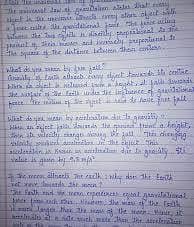 State the universal law of gravitation.
The universal law of gravitation states that every
object in the universe attracts every other object with
a force called the gravitational force. The force acting
between the two objects is directly proportional to the
product of their masses and inversely proportional to
the square of the distance between their centers.
What do you mean by free fall?
Gravity of Earth attracts every object towards its centre.
When an object is released from a height, it falls towards
the surface of the Earth under the influence of gravitational
force. The motion of the object is said to have free fall.
What do you mean by acceleration due to gravity?
When an object falls towards the ground from a height,
then its velocity changes during the fall. This changing
velocity produces acceleration in the object. This
acceleration is known as acceleration due to gravity. Its
value is given by 9.8 m/s².
If the moon attracts the earth, why does the Earth
not move towards the moon?
The Earth and the moon experience equal gravitational
force from each other. However, the mass of the Earth
is much larger than the mass of the moon. Hence, it
accelerates at a